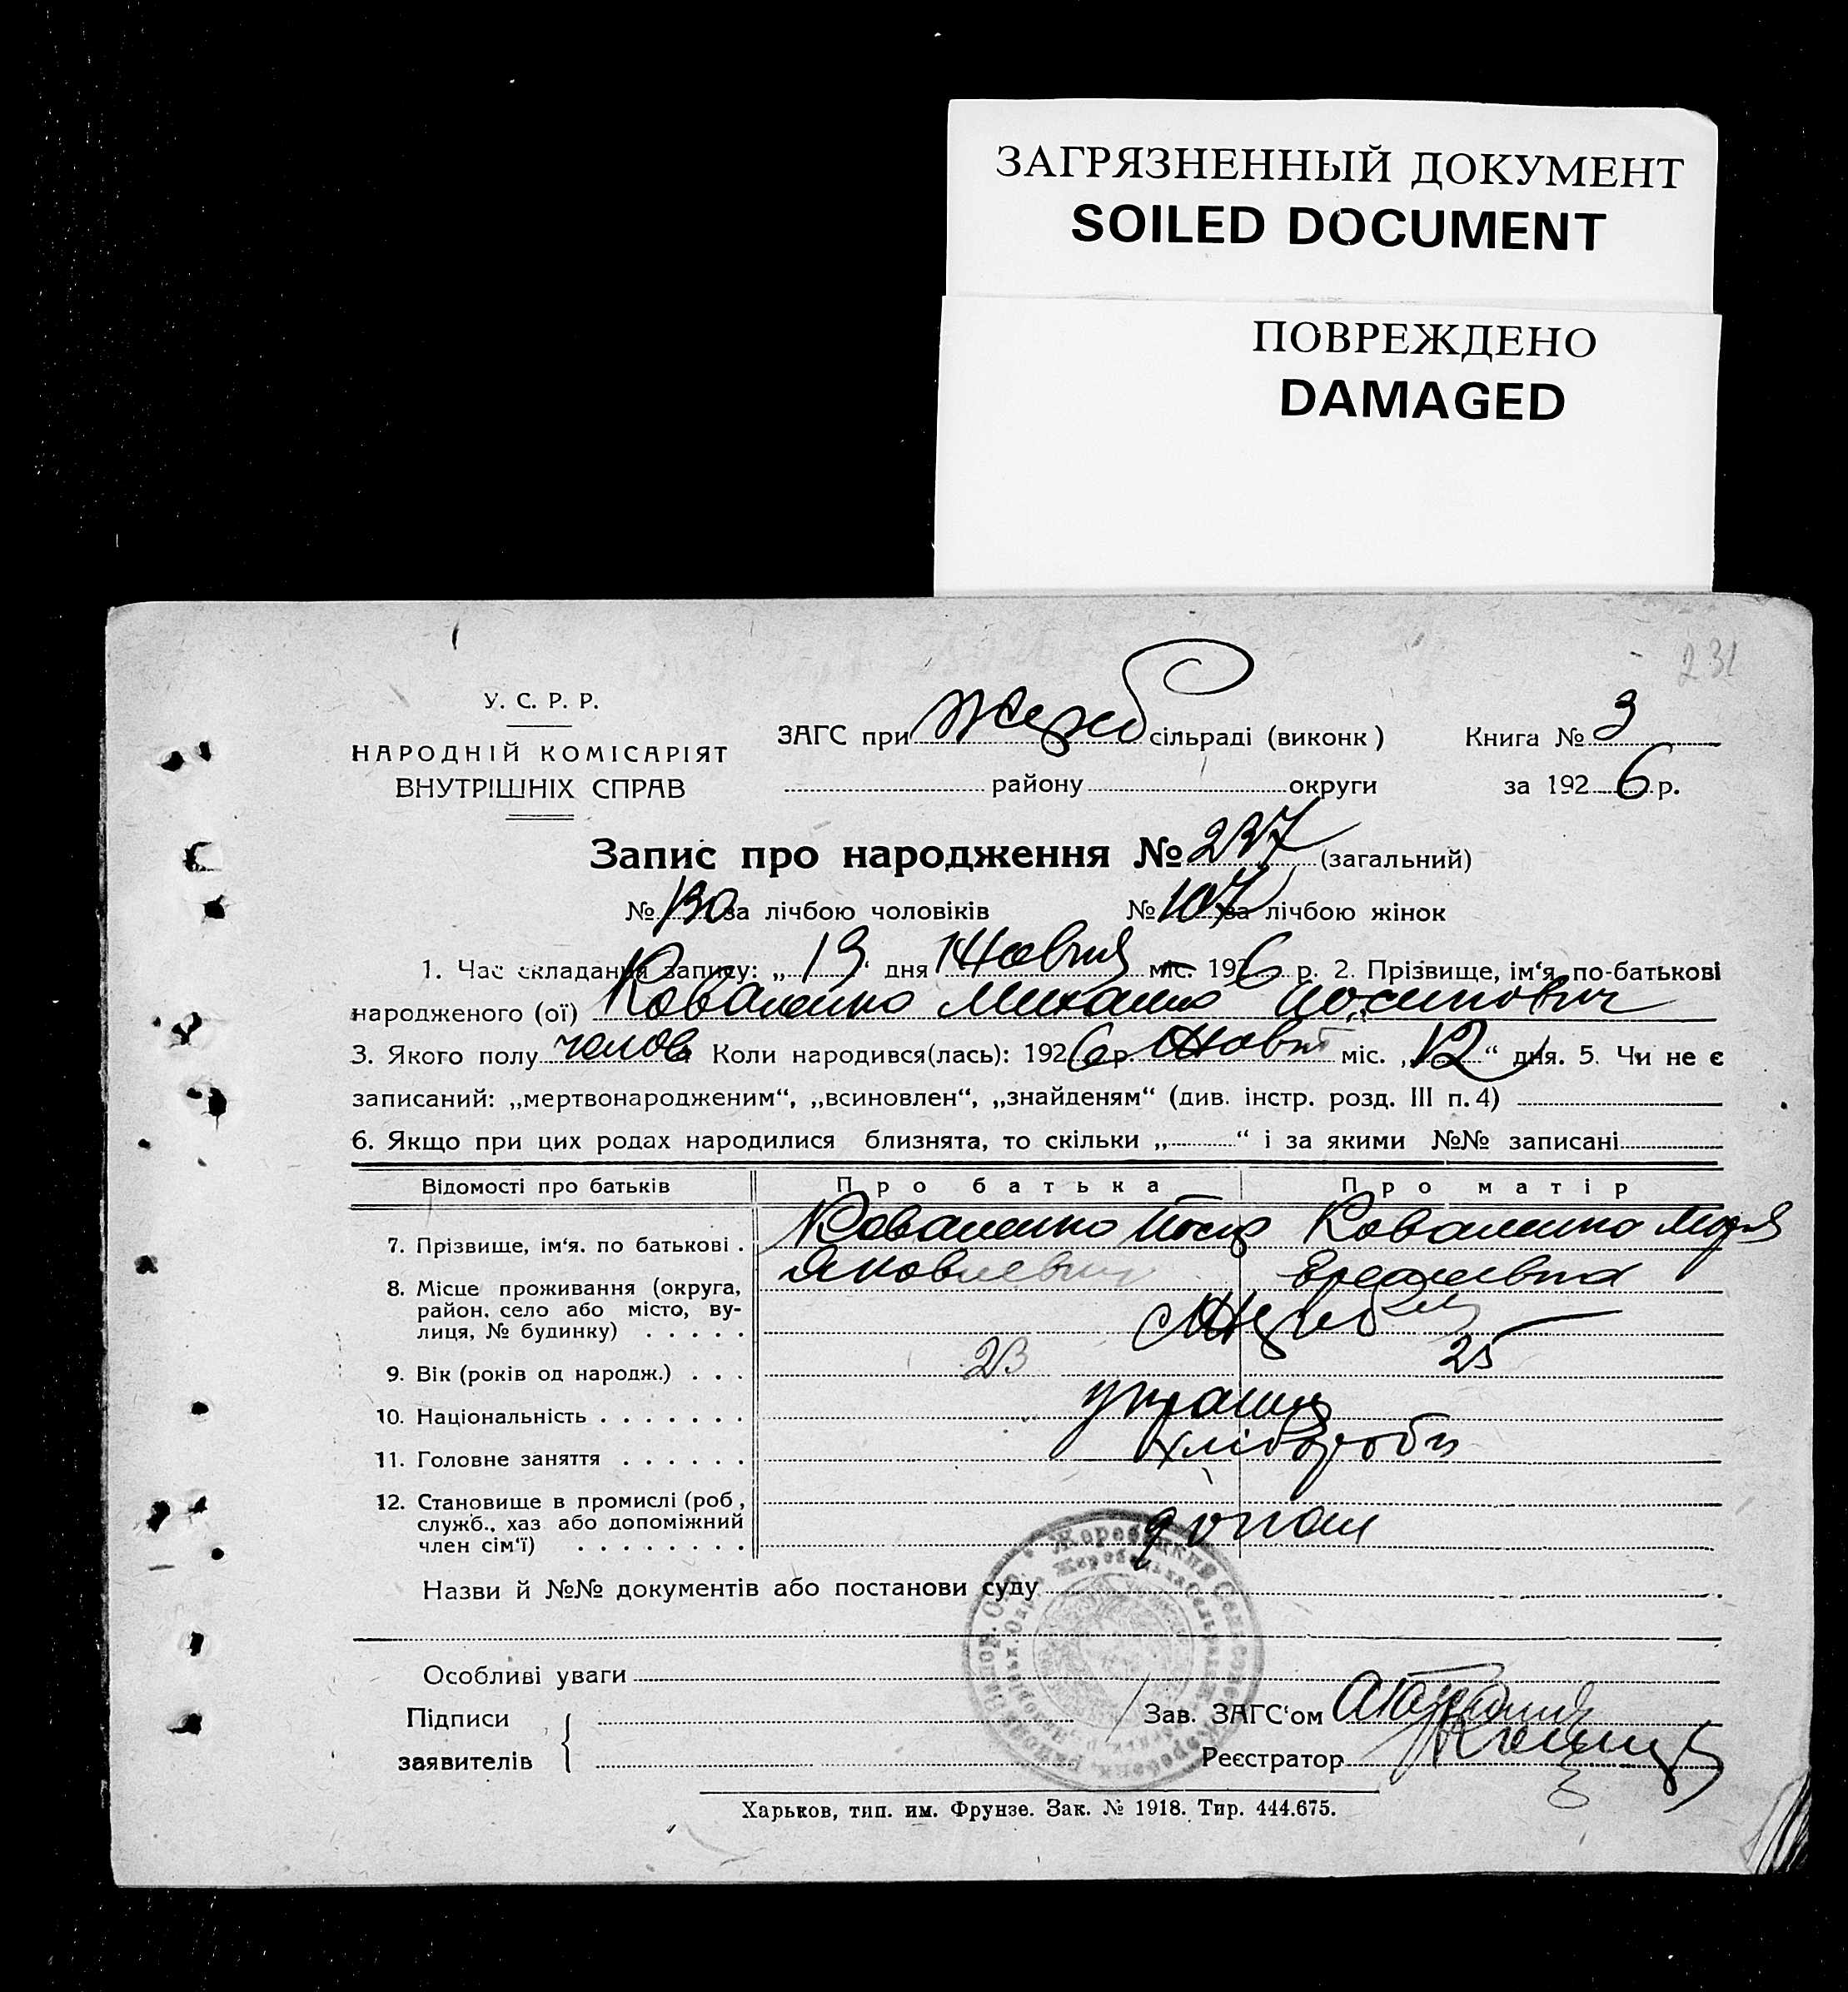 ЗАГРЯЗНЕННЫЙ ДОКУМЕНТ
SOILED DOCUMENT
ПОВРЕЖДЕНО
DAMAGED
231
У. С. Р. Р.
НАРОДНІЙ КОМІСАРІЯТ
ВНУТРІШНІХ СПРАВ
ЗАГС при Жереб сільраді (виконк) Книга № 3
району округи за 1926 р.
Запис про народження № 237 (загальний)
№ 130 за лічбою чоловіків № 107 за лічбою жінок
1. Час складання запису: „13“ дня Жовтня міс. 1926 р. 2. Прізвище, ім‘я, по-батькові
народженого (ої) Коваленко Михайло Йосипович
3. Якого полу чолов Коли народився(лась): 1926 р. Жовт міс. „12“ дня. 5. Чи не є
записаний: „мертвонародженим“, „всиновлен“, „знайденям“ (див. інстр. розд. III п. 4)
6. Якщо при цих родах народилися близнята, то скільки „ “ і за якими №№ записані
Відомості про батьків Про батька Про матір
7. Прізвище, ім‘я. по батькові . Коваленко Йосип Коваленко Марія
Яковлевич
8. Місце проживання (округа,
район, село або місто, ву-
лиця, № будинку) . . . . .
9. Вік (років од народж.) . . . 23 25
10. Національність . . . . . . . україн
11. Головне заняття . . . . . . хлібороби
12. Становище в промислі (роб,
служб., хаз або допоміжний
член сім‘ї) . . . . . . . .
Назви й №№ документів або постанови суду
Особливі уваги
Підписи
заявителів
Зав. ЗАГС‘ом
Реєстратор
Харьков, тип. им. Фрунзе. Зак. № 1918. Тир. 444.675.